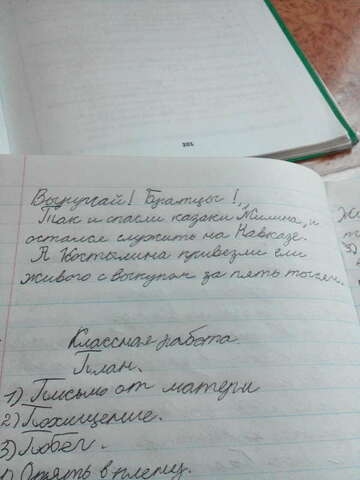 Выручай! Братцы!,,
Так и спасли казаки Жилина, и
остался служить на Кавказе.
А Костылина привезли еле
живого с выкупом за пять тысяч.
Классная работа.
План.
1) Письмо от матери
2) Похищение.
3) Побег.
Опять в плену.